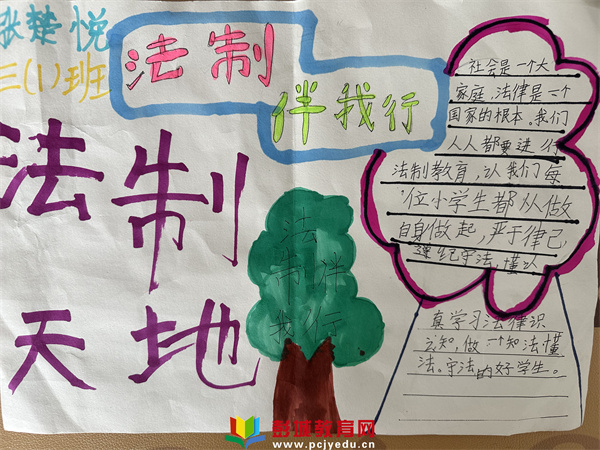 张楚悦
三(1)班
法制
伴我行
法制
天地
法
制伴
我行
社会是一个大
家庭,法律是一个
国家的根本。我们
人人都要进行
法制教育,认我们每
位小学生都从做
自身做起,严于律己
遵纪守法,懂认
真学习法律识
之知,做一个知法懂
法。守法的好学生。
彭城教育网
www.pcjyedu.cn